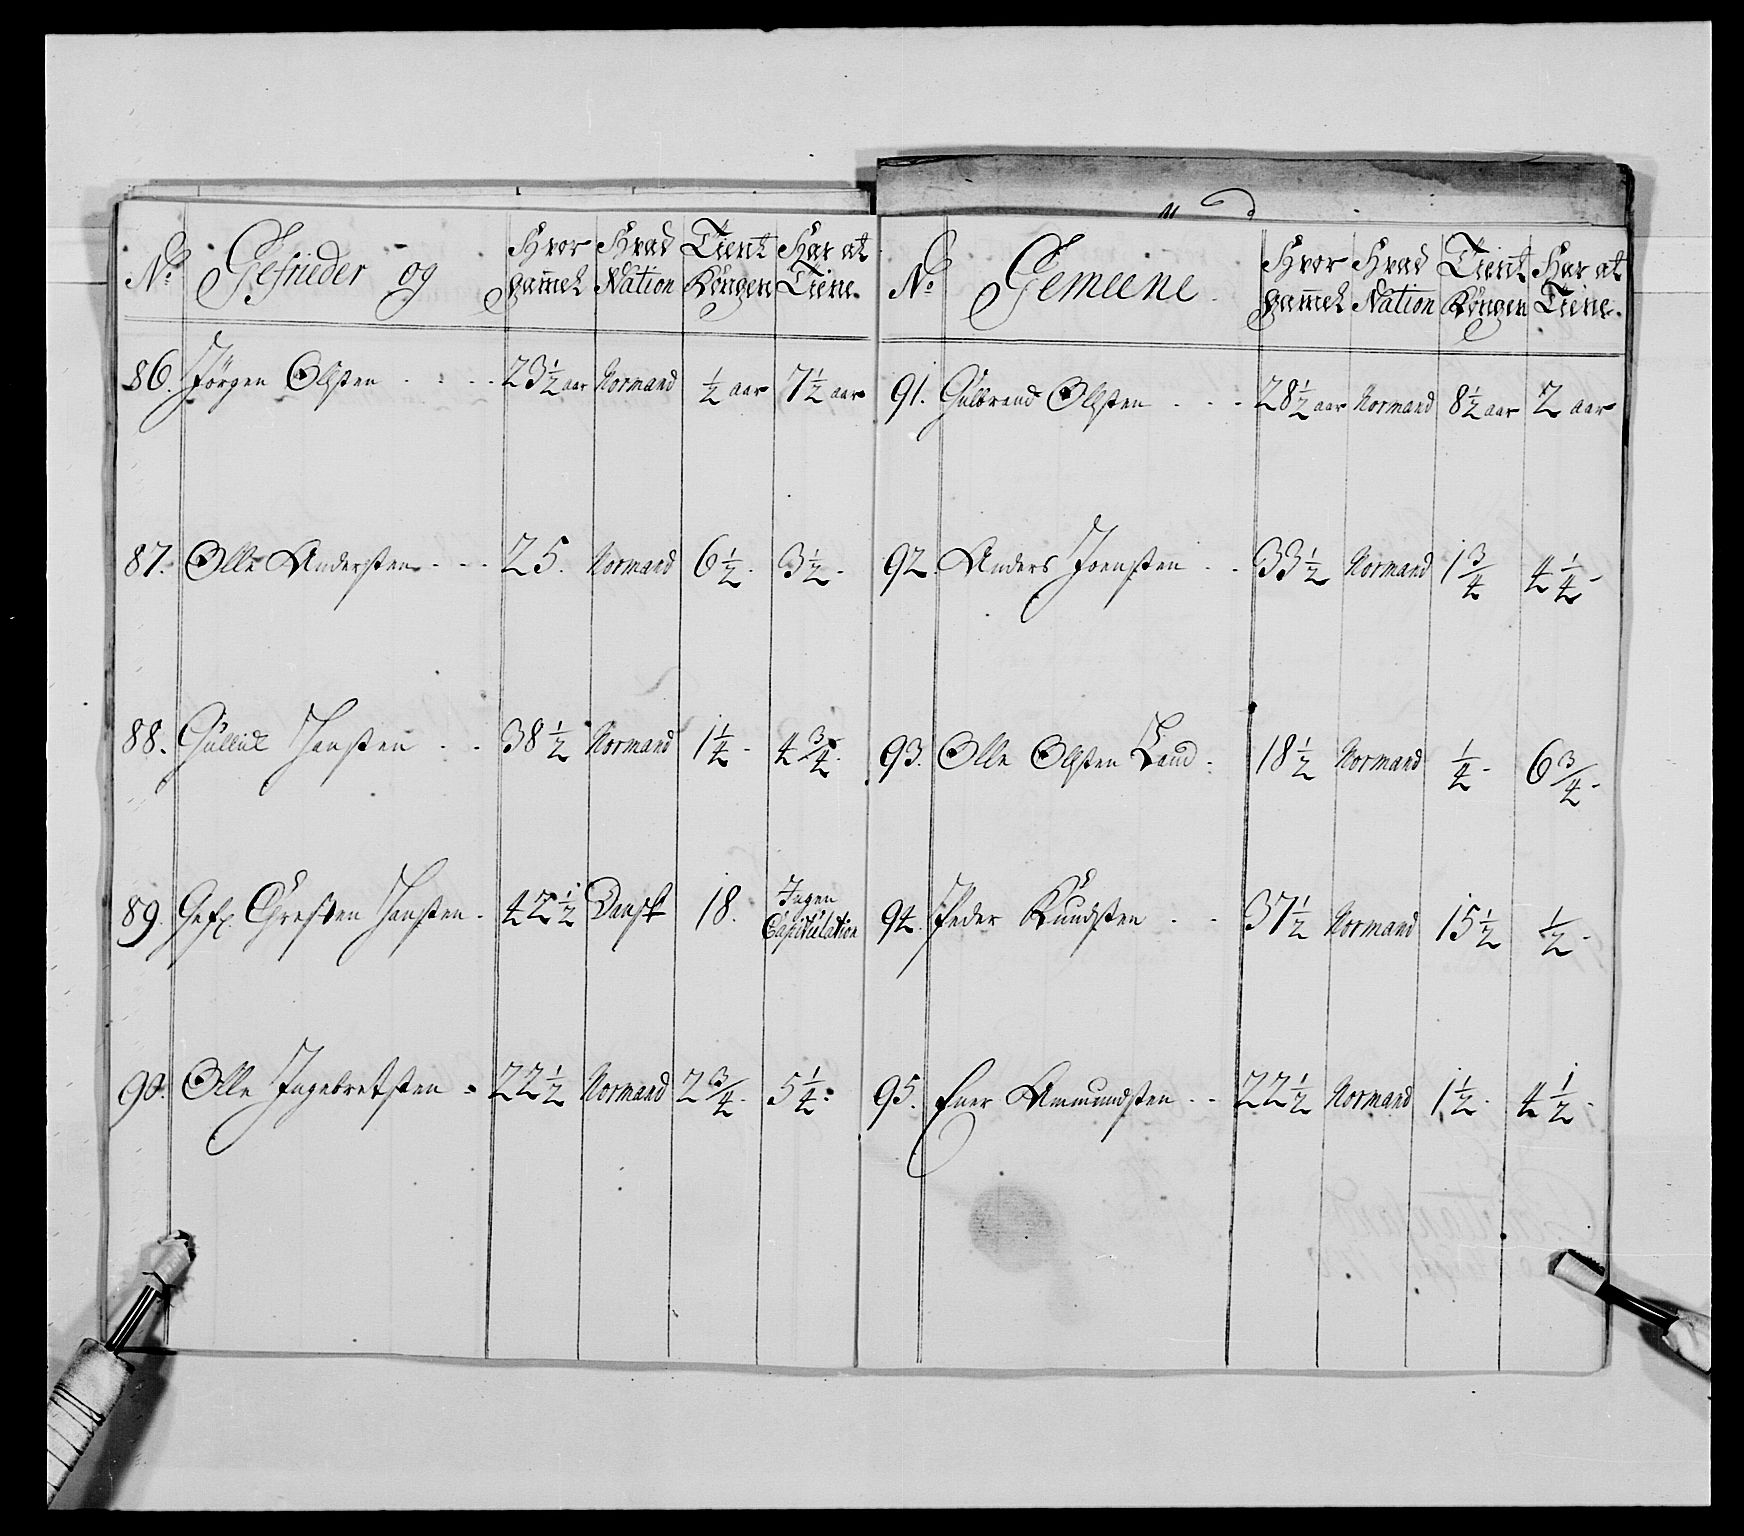 No Gefrieder og Hvor gammel Hvad Nation Tient Kongen Har at Tiene.
86. Jörgen Olsten - - - 23 1/2 aar Normand 1/2 aar 7 1/2 aar
87. Olle Andersten - - - 25. Normand 6 1/2 - 3 1/2 -
88. Gullid Hansten - - 38 1/2 Normand 1 1/4 - 4 3/4 -
89. Gefr. Christen Hansten - 42 1/2 Dansk 18. Ingen Capitulation
90. Olle Ingebretsten - 22 1/2 Normand 2 3/4 - 5 1/4 -
No Gemeene Hvor gammel Hvad Nation Tient Kongen Har at Tiene.
91. Gulbrand Olsten - - - 28 1/2 aar Normand 8 1/2 aar 2 aar
92. Anders Joensten - - 33 1/2 Normand 1 3/4 4 1/4 -
93. Olle Olsten Land - 18 1/2 Normand 1/4 - 6 3/4 -
94. Peder Knudsten - - 37 1/2 Normand 15 1/2 1/2 -
95. Ener Ammundsten - - 22 1/2 Normand 1 1/2 - 4 1/2 -